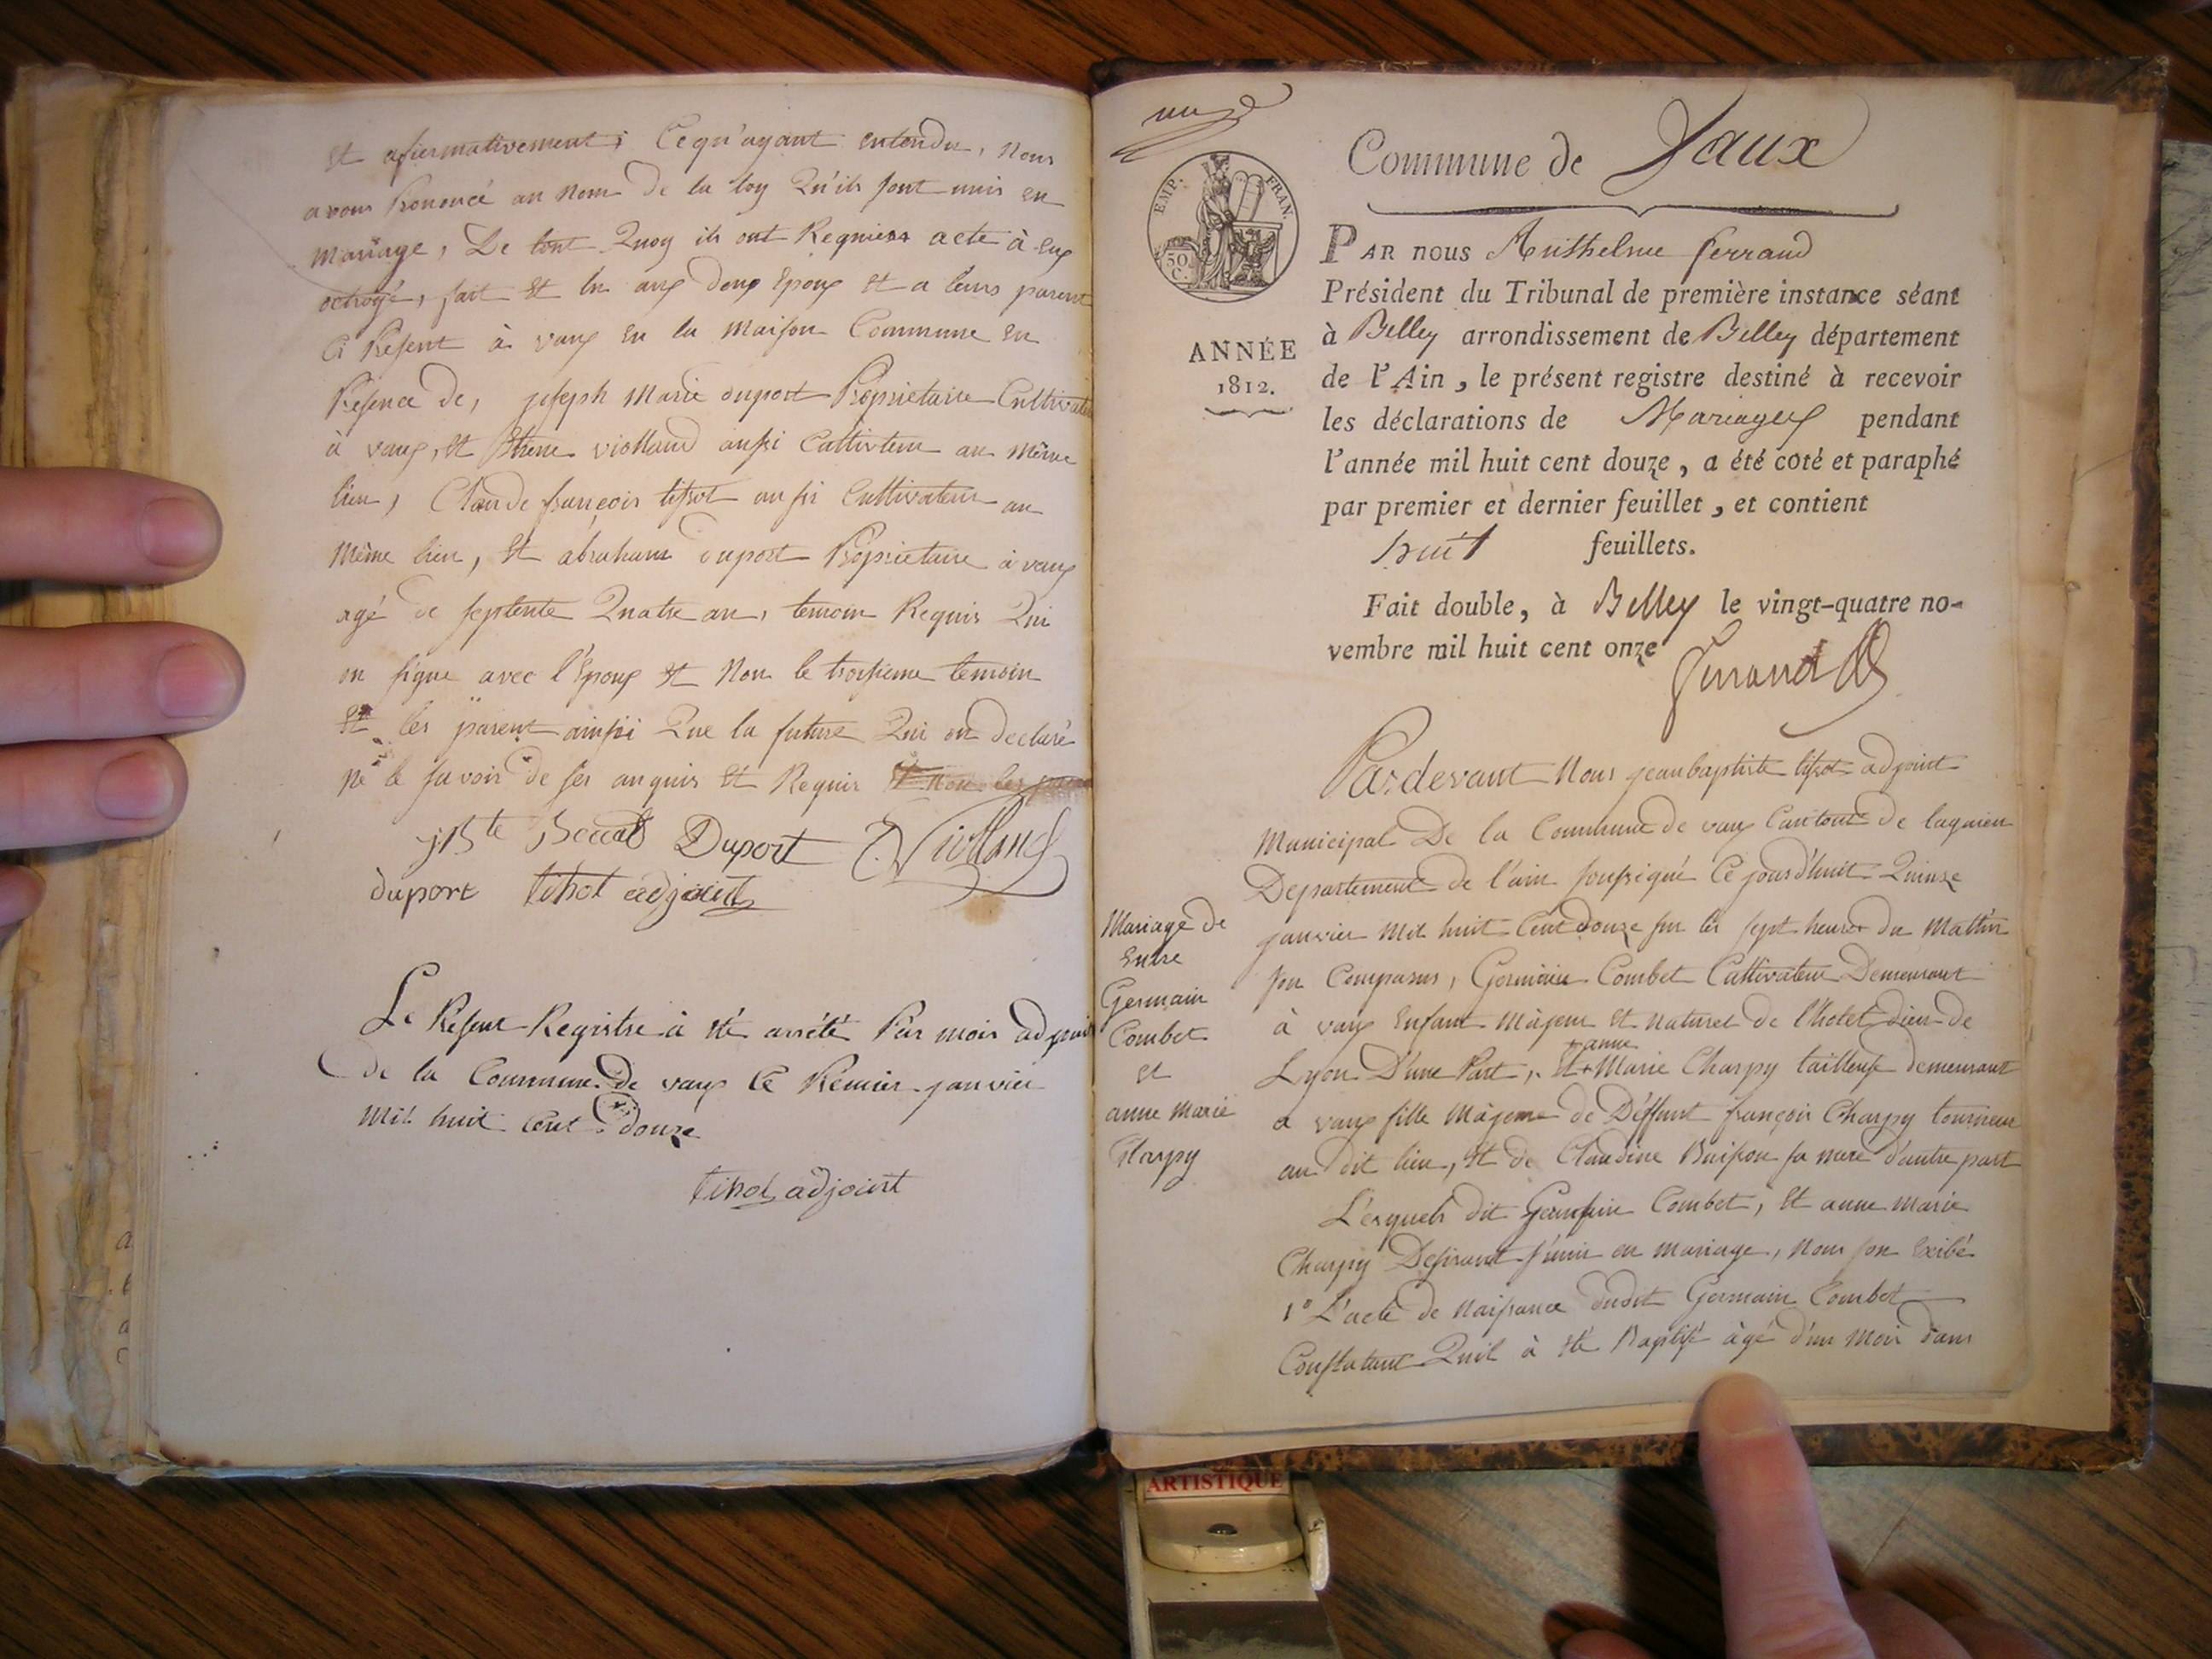 et afiermativement; Cequ'ayant entendu, Nous
avons Prononcé au Nom De la loy Qu'ils sont unis en
Mariage, De tout Quoy ils ont Requiers acte à eux
octroyé, fait et lu aux deux Epoux et a leurs parent
Ci Présent à vaux en la Maison Commune en
Présence de, joseph Marie duport Propriétaire Cultivateur
à vaux, et violland aussi Cultivteur au Même
lieu, Claude françois tissot aussi Cultivateur au
Même lieu, et abraham duport Propriétaire à vaux
agé de septente Quatre an, temoin Requis Qui
on signe avec l'Epoux et Non le troisieme temoin
et les parent ainssi Que la future Qui on declaré
ne le savoir de ses anquis et Requis et non les
jBte Duport Violland
duport tissot adjoint
Le Présent Registre à été arrêté Par mois adjoint
De la Commune De vaux le Premier janvier
Mil huit Cent douze
tissot adjoint
une
Commune de Vaux
EMP. FRAN.
50 C.
ANNÉE
1812.
PAR nous Anthelme ferrand
Président du Tribunal de première instance séant
à Belley arrondissement de Belley département
de l'Ain, le présent registre destiné à recevoir
les déclarations de Mariages pendant
l'année mil huit cent douze, a été coté et paraphé
par premier et dernier feuillet, et contient
huit feuillets.
Fait double, à Belley le vingt-quatre no-
vembre mil huit cent onze
ferrand
Pardevant Nous jeanbaptiste tissot adjoint
Municipal De la Commune de vaux Cantont De lagnieu
Departement de l'ain soussigné Ce jourd'huit Quinze
janvier Mil huit Cent douze sur les sept heures du Mattin
son Comparus, Germain Combet Cultivateur Demeurant
à vaux Enfant Majeur et naturel de l'hotel dieu de
Lyon D'une Part, et + anne Marie Charpy tailleuse demeurant
a vaux fille Majeure de Deffunt françois Charpy tourneur
au dit lieu, et de Claudine Buisson sa mere d'autre part
L'esquels dit Germain Combet, et anne Marie
Charpy Desirant s'unir en mariage, Nous son Exibé
1° L'acte de Naissance dudit Germain Combet
Constatant Quil à été Baptisé àgé d'un Mois dans
Mariage de
Entre
Germain
Combet
et
anne Marie
Charpy
ARTISTIQUE